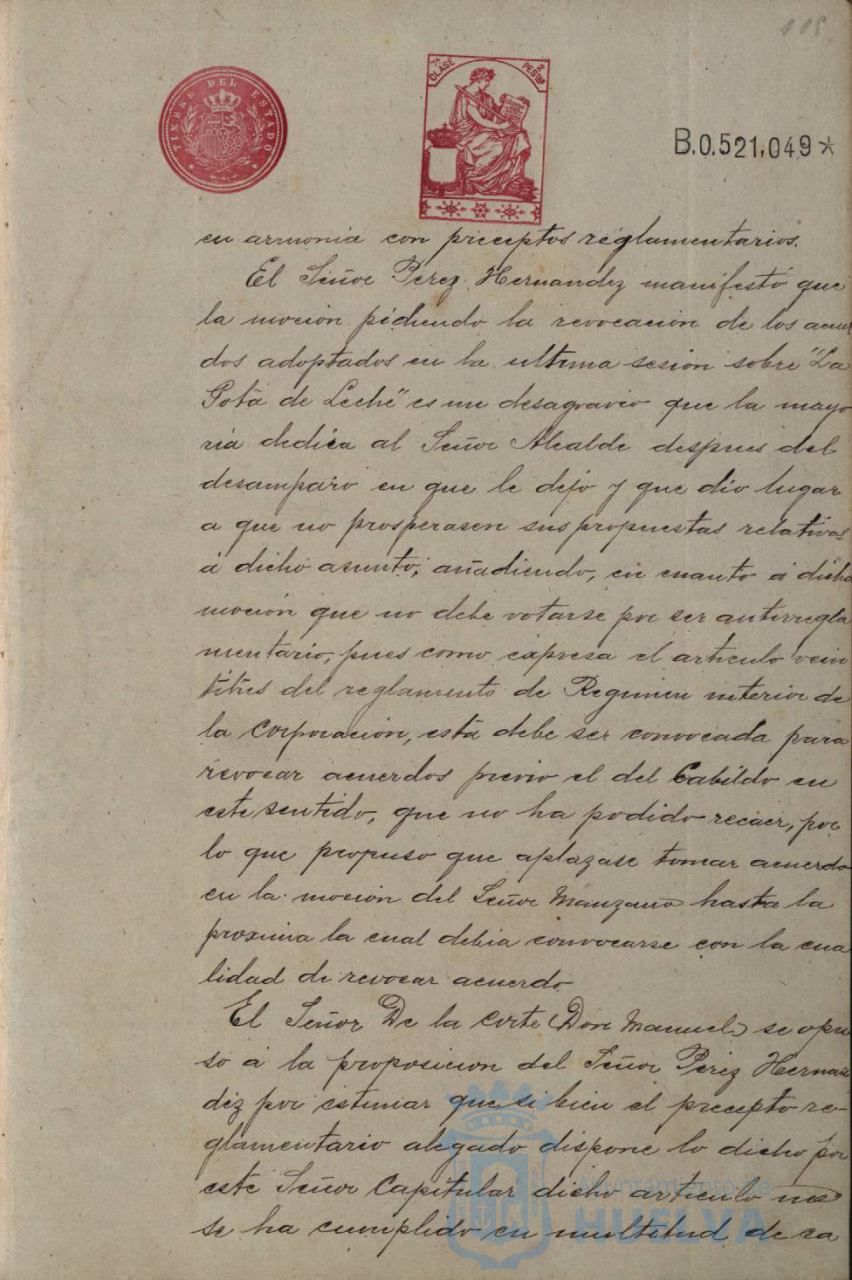 118
TIMBRE DEL ESTADO
7ª CLASE
2 PESTAS
B.0.521,049*
en armonia con preceptos reglamentarios.
El Señor Perez Hernandez manifestó que
la moción pidiendo la revocación de los acuer
dos adoptados en la ultima sesión sobre "La
Gota de Leche" es un desagravio que la mayo
ria dedica al Señor Alcalde despues del
desamparo en que le dejó y que dio lugar
a que no prosperasen sus propuestas relativas
á dicho asunto; añadiendo, en cuanto á dicha
moción que no debe votarse por ser antirregla
mentario, pues como expresa el articulo vein
titres del reglamento de Regimen interior de
la Corporación, está debe ser convocada para
revocar acuerdos previo el del Cabildo en
este sentido, que no ha podido recaer, por
lo que propuso que aplazase tomar acuerdo
en la moción del Señor Manzano hasta la
proxima la cual debia convocarse con la cua
lidad de revocar acuerdo.
El Señor De la Corte (Don Manuel) se opu
so á la proposicion del Señor Perez Hernan
dez por estimar que si bien el precepto re-
glamentario alegado dispone lo dicho por
este Señor Capitular dicho articulo no
se ha cumplido en multitud de ca
Ayuntamiento de
HUELVA